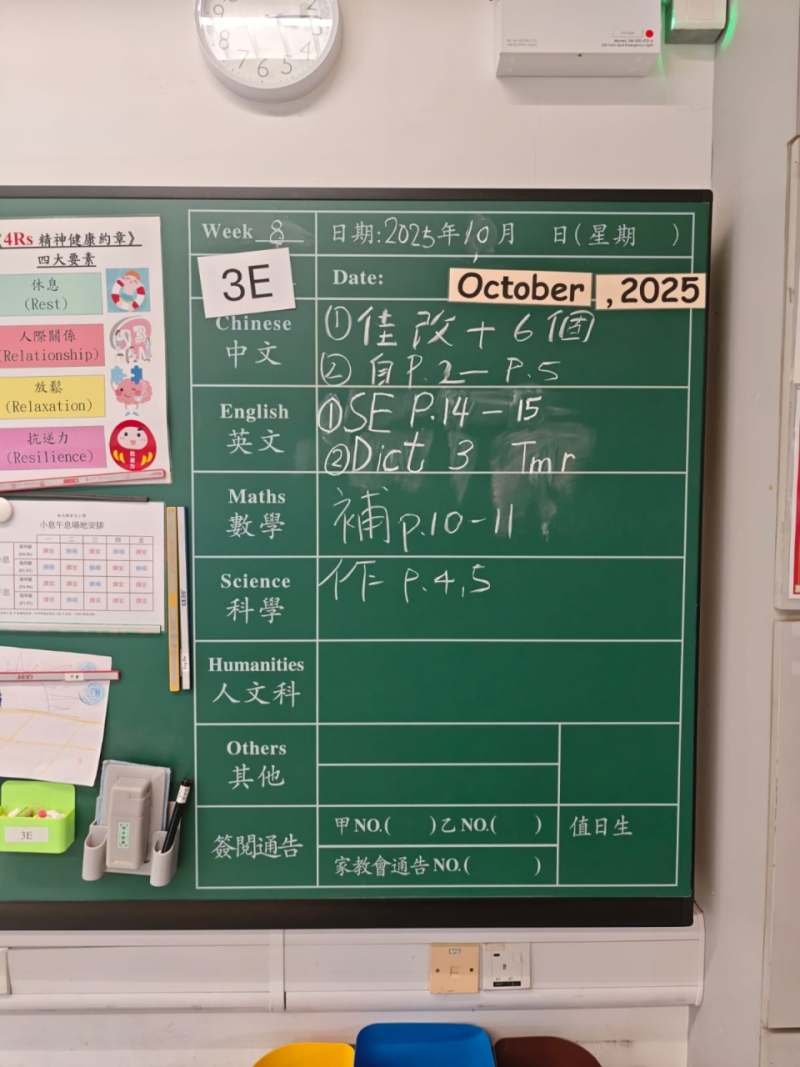 《4Rs 精神健康約章》
四大要素
休息
(Rest)
人際關係
(Relationship)
放鬆
(Relaxation)
抗逆力
(Resilience)
小息午息場地安排
一 二 三 四 五
3E
Week 8
日期:2025年10月 日(星期 )
3E
Date: October , 2025
Chinese
中文
①佳改+6個
②自P.2—P.5
English
英文
①SE P.14-15
②Dict 3 Tmr
Maths
數學
補p.10-11
Science
科學
作 p.4,5
Humanities
人文科
Others
其他
簽閱通告
甲NO.( )乙NO.( )
家教會通告NO.( )
值日生